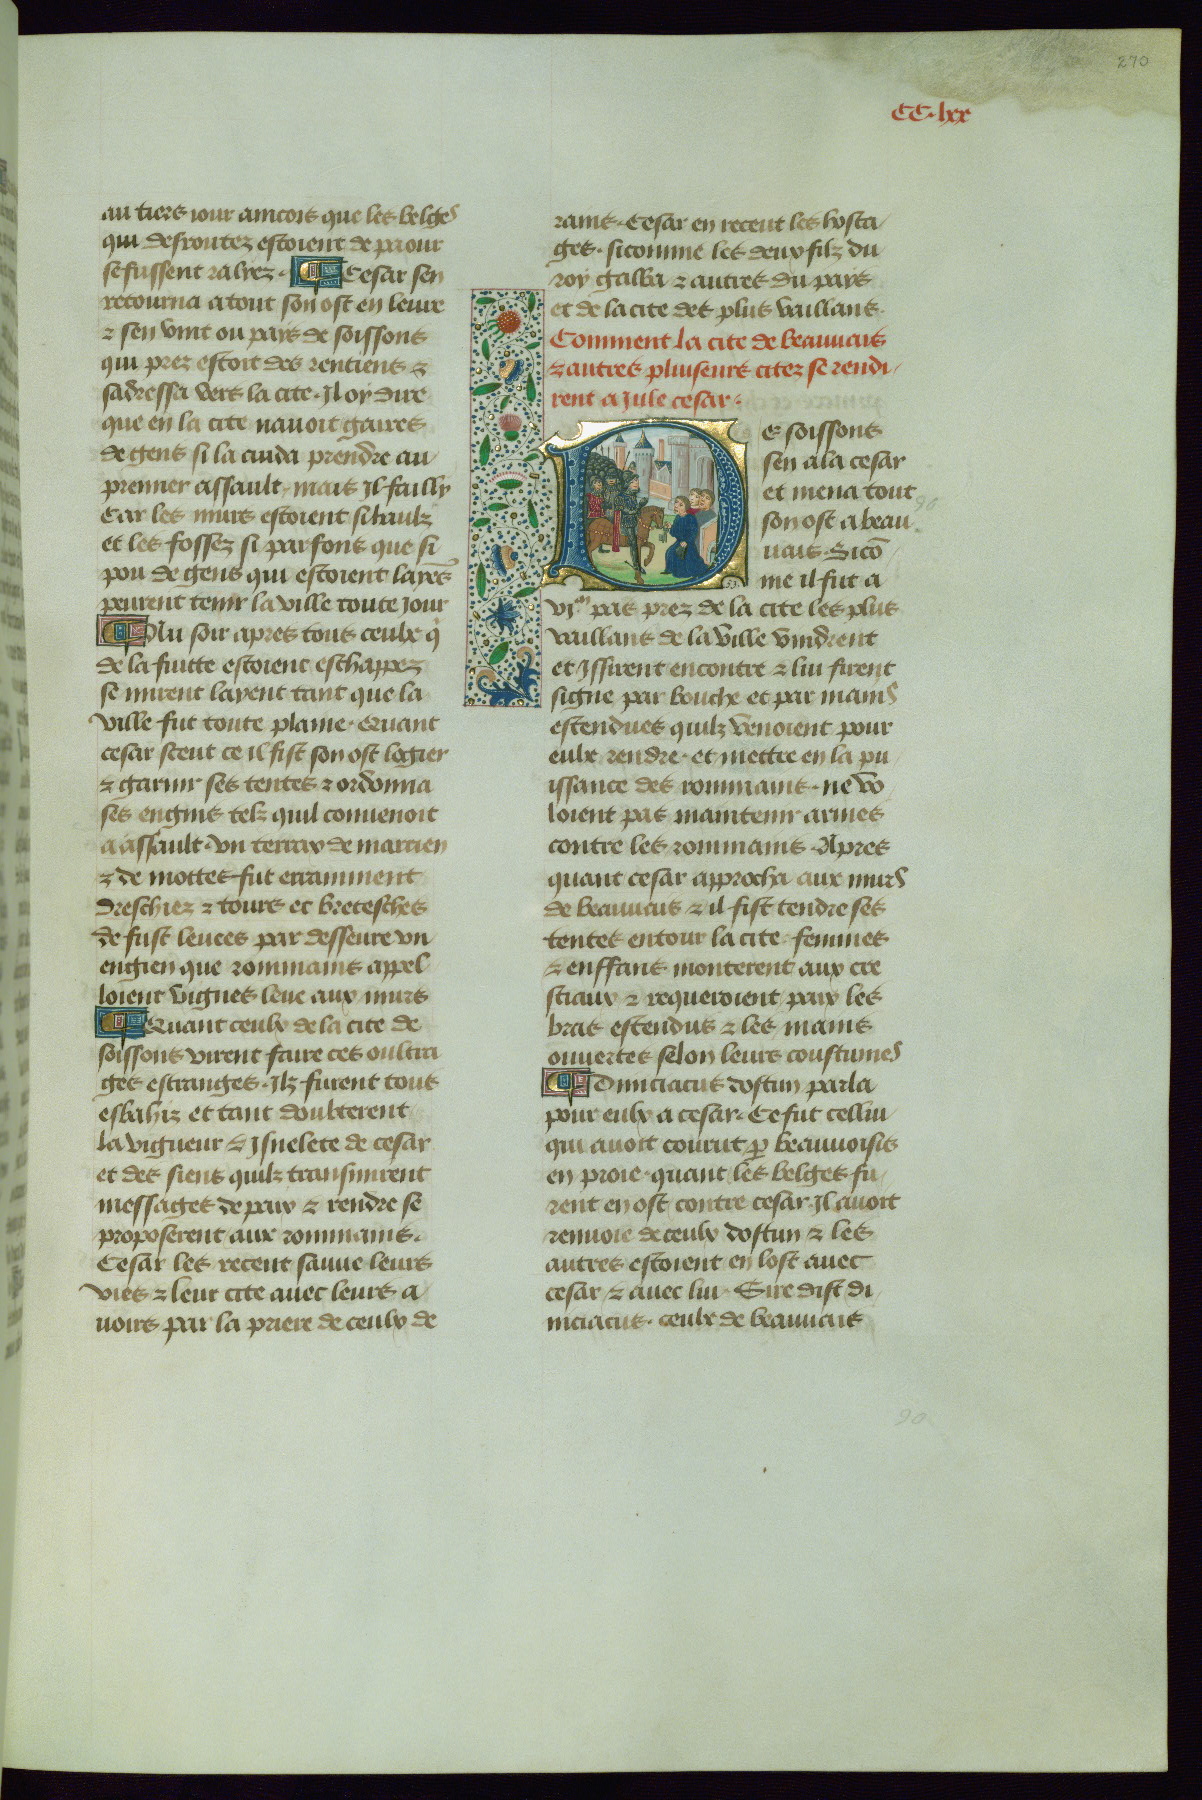 270
CC.lxx
au tiers iour amcois que les belges
qui desroutez estoient de paour
se fussent raliez. Cesar sen
retourna atout son ost en leure
⁊ sen vint ou pays de soissons
qui prez estoit des rentiens ⁊
sadressa vers la cite. Il oy dire
que en la cite nauoit gaires
de gens si la cuida prendre au
premier assault. mais Il failly
Car les murs estoient si haulz
et les fossez si parfons que si
pou de gens qui estoient layens
peurent tenir la ville toute Jour
Au soir apres tous ceulx q̄
de la fuitte estoient eschappez
se mirent layens tant que la
ville fut toute plaine. Quant
cesar sceut ce il fist son ost logier
⁊ garnir ses tentes ⁊ ordonna
ses engins telz quil conuenoit
a assault. vn terray de marrien
⁊ de mottes fut erramment
dreschiez ⁊ tours et bretesches
de fust leuees par desseure vn
engien que rommains appel
loient vignes leue aux murs
Quant ceulx de la cite de
soissons virent faire ces oultra
ges estranges. Ilz furent tous
esbahiz et tant doubterent
la vigueur ⁊ Isnelete de cesar
et des siens quilz transmirent
messages de paix ⁊ rendre se
proposerent aux rommains.
Cesar les recent sauue leurs
vies ⁊ leur cite auec leurs a
uoirs par la priere de ceulx de
rains. Cesar en recent les hosta
ges. si comme les deux filz du
roy galba ⁊ autres du pays
et de la cite des plus vaillans.
Comment la cite de beauuais
⁊ autres pluiseurs citez se rendi
rent a Jule cesar.
De soissons
sen ala cesar
et mena tout
son ost a beau
uais. Sicō
me il fut a
vi.m pas prez de la cite les plus
vaillans de la ville vindrent
et Issirent encontre ⁊ lui firent
signe par bouche et par mains
estendues quilz venoient pour
eulx rendre. et mettre en la pu
issance des rommains. ne vo
loient pas maintenir armes
contre les rommains. Apres
quant cesar approcha aux murs
de beauuais ⁊ il fist tendre ses
tentes entour la cite. femmes
⁊ enffans monterent aux cre
stiaux ⁊ requeroient paix les
bras estendus ⁊ les mains
ouuertes selon leurs coustumes
Diuiciacus dostun parla
pour eulx a cesar. Ce fut cellui
qui auoit courut ꝑ beauuoisis
en proie. quant les belges fu
rent en ost contre cesar. Il auoit
renuoie de ceulx dostun ⁊ les
autres estoient en lost auec
cesar ⁊ auec lui. Sire dist di
uiciacus. ceulx de beauuais
90
90